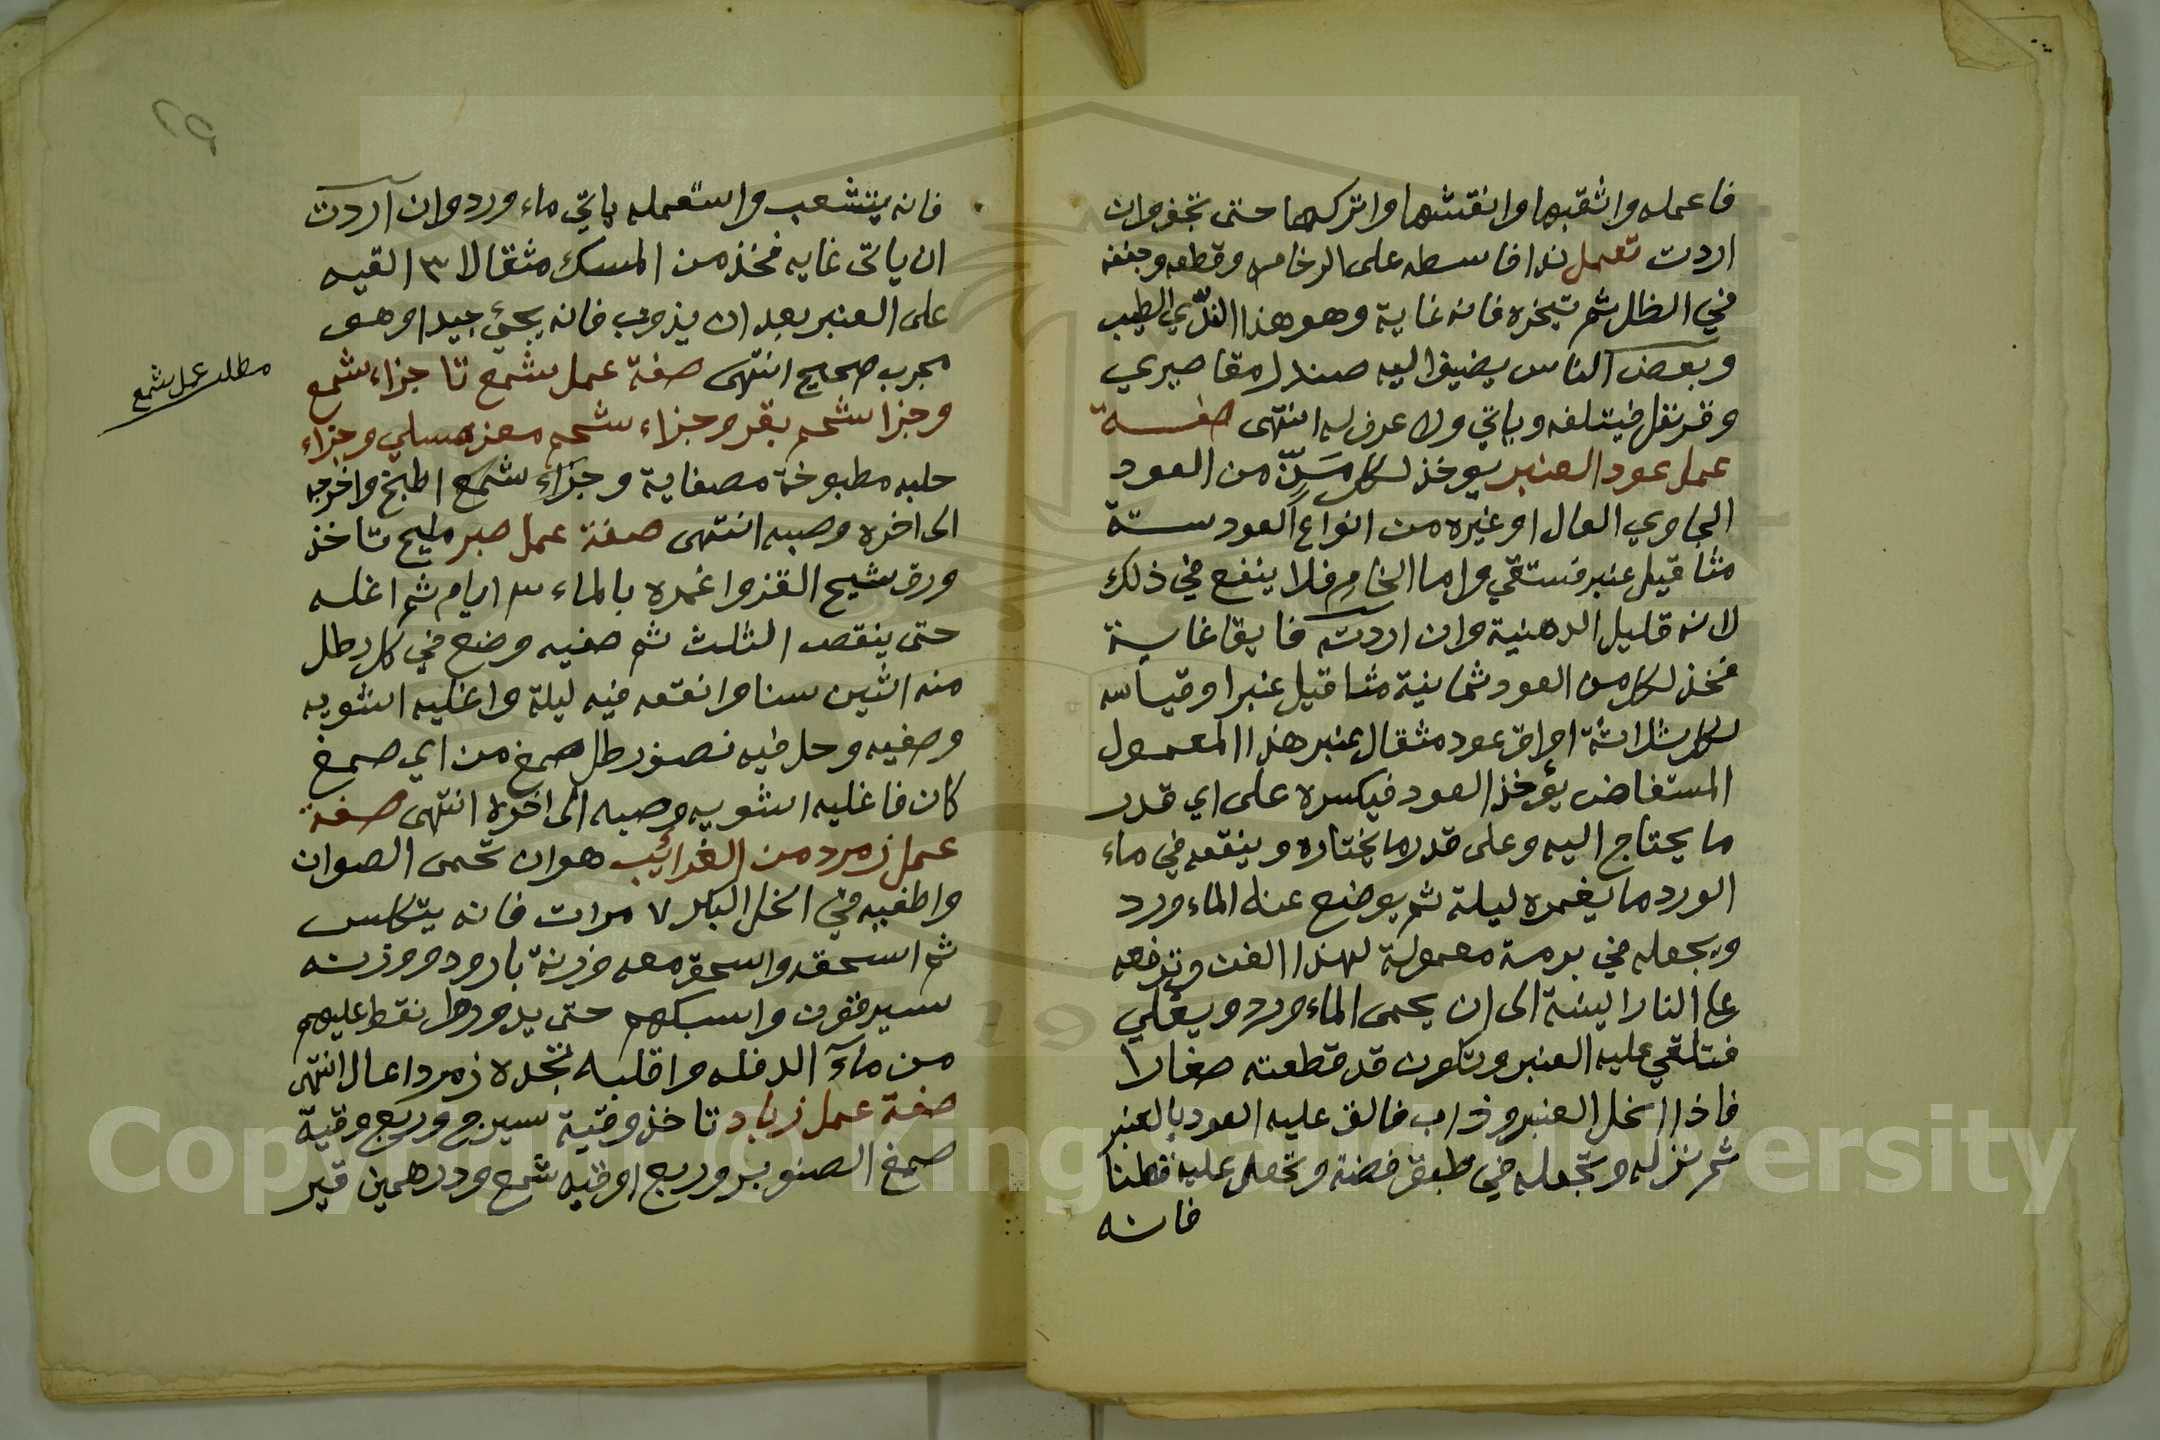 فاعمله واثقبها وانقشها واتركها حتى تجف وان
اردت تعمل ندا فابسطه على الرخامه وقطعه وجففه
في الظل ثم تبخره فانه غاية وهو هذا الندّي الطيب
وبعض الناس يضيف اليه صندل مقاصيري
وقرنفل فيتلفه وياتي ولا عرف له انتهى صفة
عمل عود العنبر يوخذ لكل مَنّ من العود
الجاوي العال او غيره من انواع العود ستة
مثاقيل عنبر فستقي واما الخام فلا ينفع في ذلك
لانه قليل الدهنية وان اردت فايقا غاية
فخذ لكل من العود ثمانية مثاقيل عنبر او قياسه
لكل ثلاثة اواق عود مثقال عنبر هذا المعمول
المستفاض يؤخذ العود فيكسره على اي قدر
ما يحتاج اليه وعلى قدر ما يختاره وينقعه في ماء
الورد ما يغمره ليلة ثم يوضع عنه الماء ورد
ويجعله في برمة معمولة لهذا الفن وترفعه
على النار لينة الى ان يحمى الماء ورد ويغلي
فتلقي عليه العنبر وتكون قد قطعته صغارا
فاذا انحل العنبر وذاب فالق عليه العود بالعنبر
ثم نزله وتجعله في طبق فضة وتجعل عليه قطنا
فانه
فانه يتشعب واستعمله ياتي ماء ورد وان اردت
ان ياتى غايه فخذ من المسك مثقالا ٣ القيه
على العنبر بعد ان يذوب فانه يجئ جيدا وهو
مجرب صحيح انتهى صفة عمل شمع تا جزاء شمع
وجزا شحم بقر وجزاء شحم معز مسلي وجزاء
حلبه مطبوخة مصفاية وجزاء شمع اطبخ واخرجه
الى اخره وصبه انتهى صفة عمل صبر مليح تاخذ
ورق شيح القز واغمره بالماء ٣ ايام ثم اغله
حتى ينقص الثلث ثم صفيه وضع في كل رطل
منه اثنين سنا وانقعه فيه ليلة واغليه اشويه
وصفيه وحل فيه نصف رطل صمغ من اي صمغ
كان فاغليه اشويه وصبه الى اخره انتهى صفة
عمل زمرد من الغرائب هو ان تحمى الصوان
واطفيه في الخل البكر ٧ مرات فانه يتكلس
ثم اسحقه واسحق معه وزنة بارود ووزنه
سيرقون واسبكهم حتى يدوروا نقط عليهم
من مآء الدفله واقلبه تجده زمردا عال انتهى
صفة عمل زباد تاخذ وقية سيرج وربع وقية
صمغ الصنوبر وربع اوقيه شمع ودرهمين قير
مطلب عمل شمع